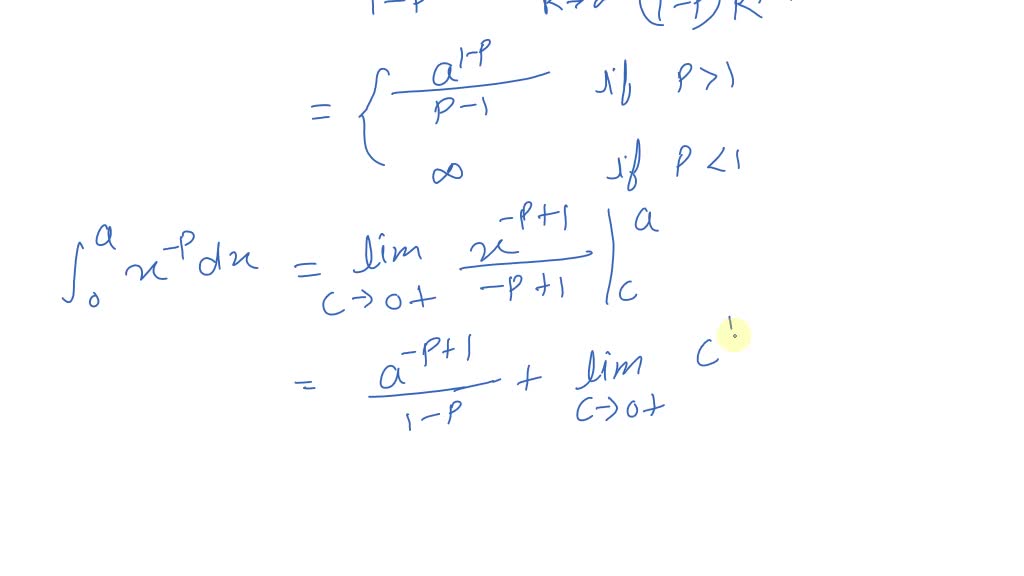 1-P K→∞ (1-P)K
= { a^{1-P} / P-1 if P>1
∞ if P<1
∫_0^a x^{-P} dx = lim_{C→0+} x^{-P+1} / -P+1 |_C^a
= a^{-P+1} / 1-P + lim_{C→0+} C^1